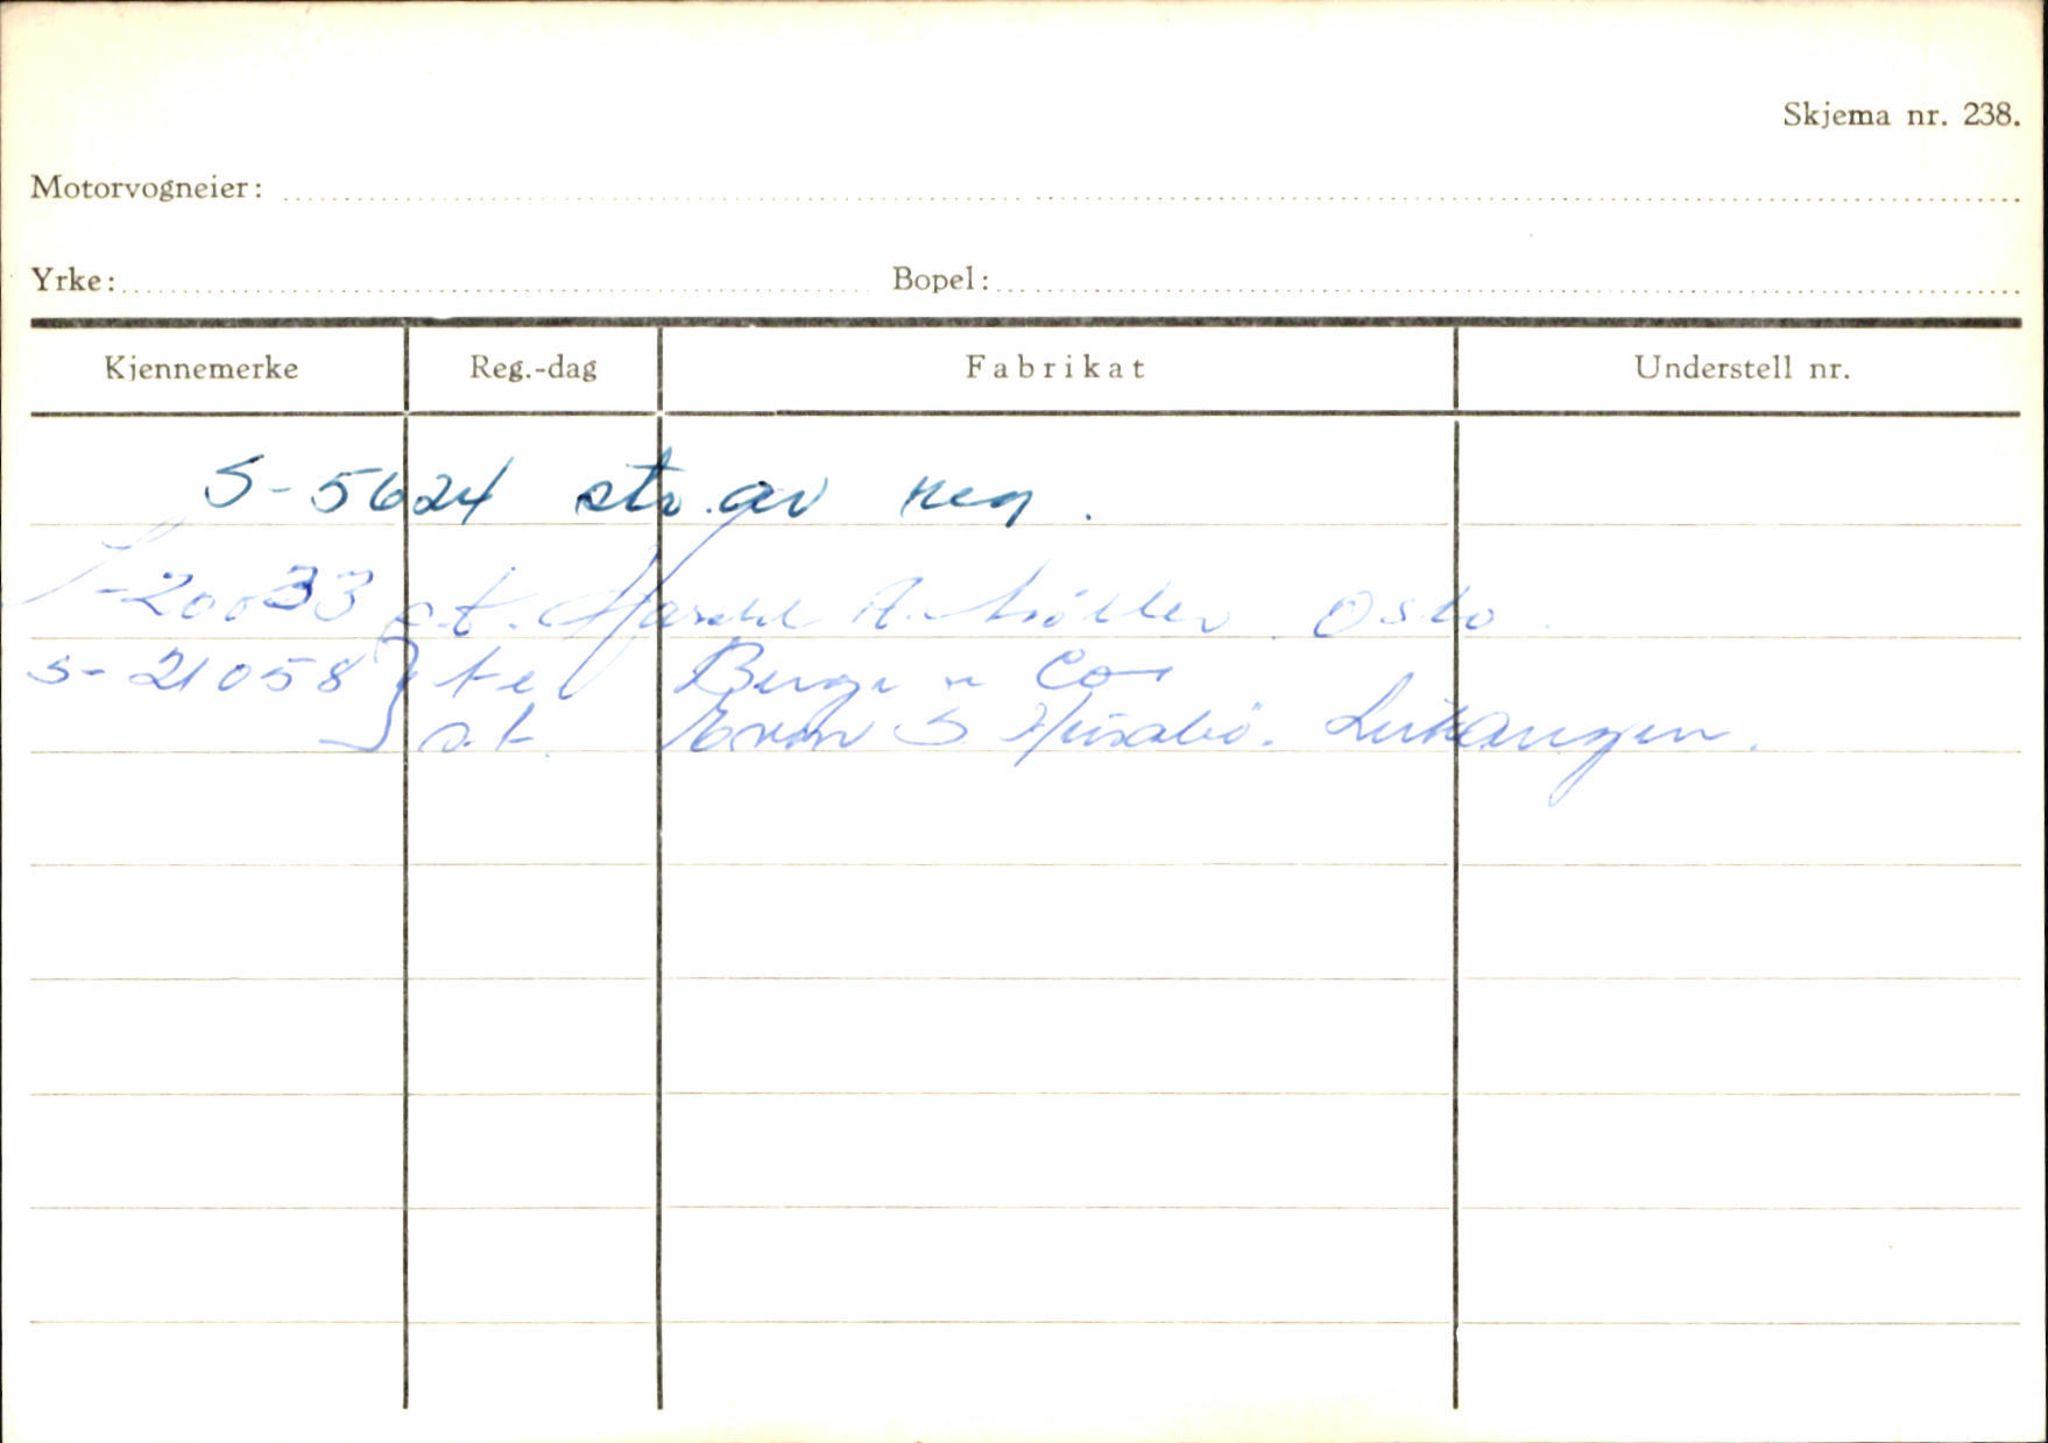 Skjema nr. 238.
Motorvogneier:
Yrke: Bopel:
Kjennemerke Reg.-dag Fabrikat Understell nr.
S-5624 str. av reg.
S-20033 o.t. Harald A. Möller Oslo.
S-21058 Berge Co
o.t. S Husabö. Leikanger.